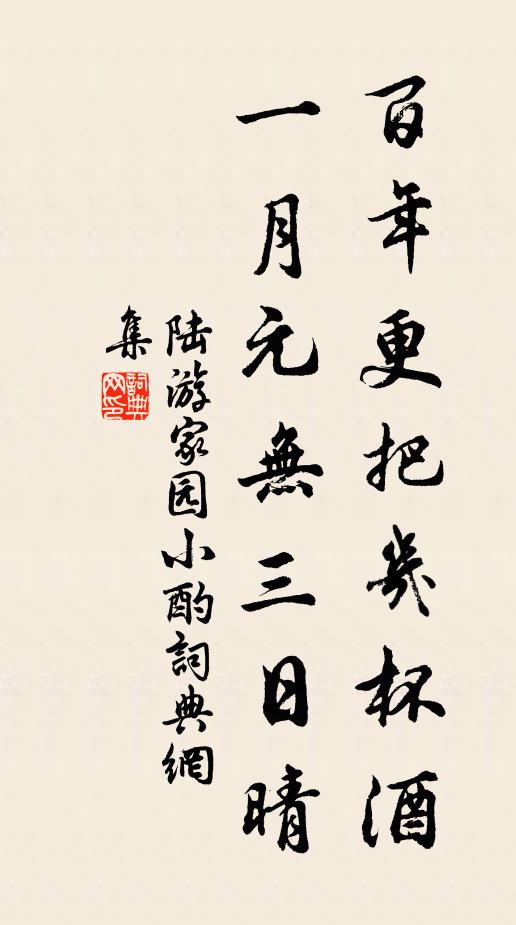 百年更把幾杯酒
一月元無三日晴
陆游家园小酌詞典網
集
詞典網印